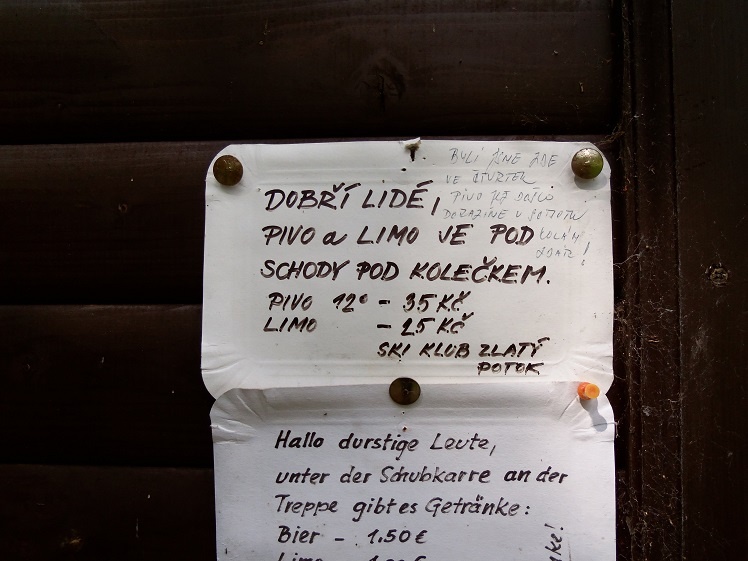 DOBŘÍ LIDÉ,
PIVO a LIMO JE POD
SCHODY POD KOLEČKEM.
PIVO 12° - 35 KČ
LIMO - 25 KČ
SKI KLUB ZLATÝ
POTOK
BYLI JSME ZDE
VE ČTVRTEK
PIVO JIŽ DOŠLO
DORAZÍME V SOBOTU
KOLÁM
ZDAR!
Hallo durstige Leute,
unter der Schubkarre an der
Treppe gibt es Getränke:
Bier - 1.50 €
Limo